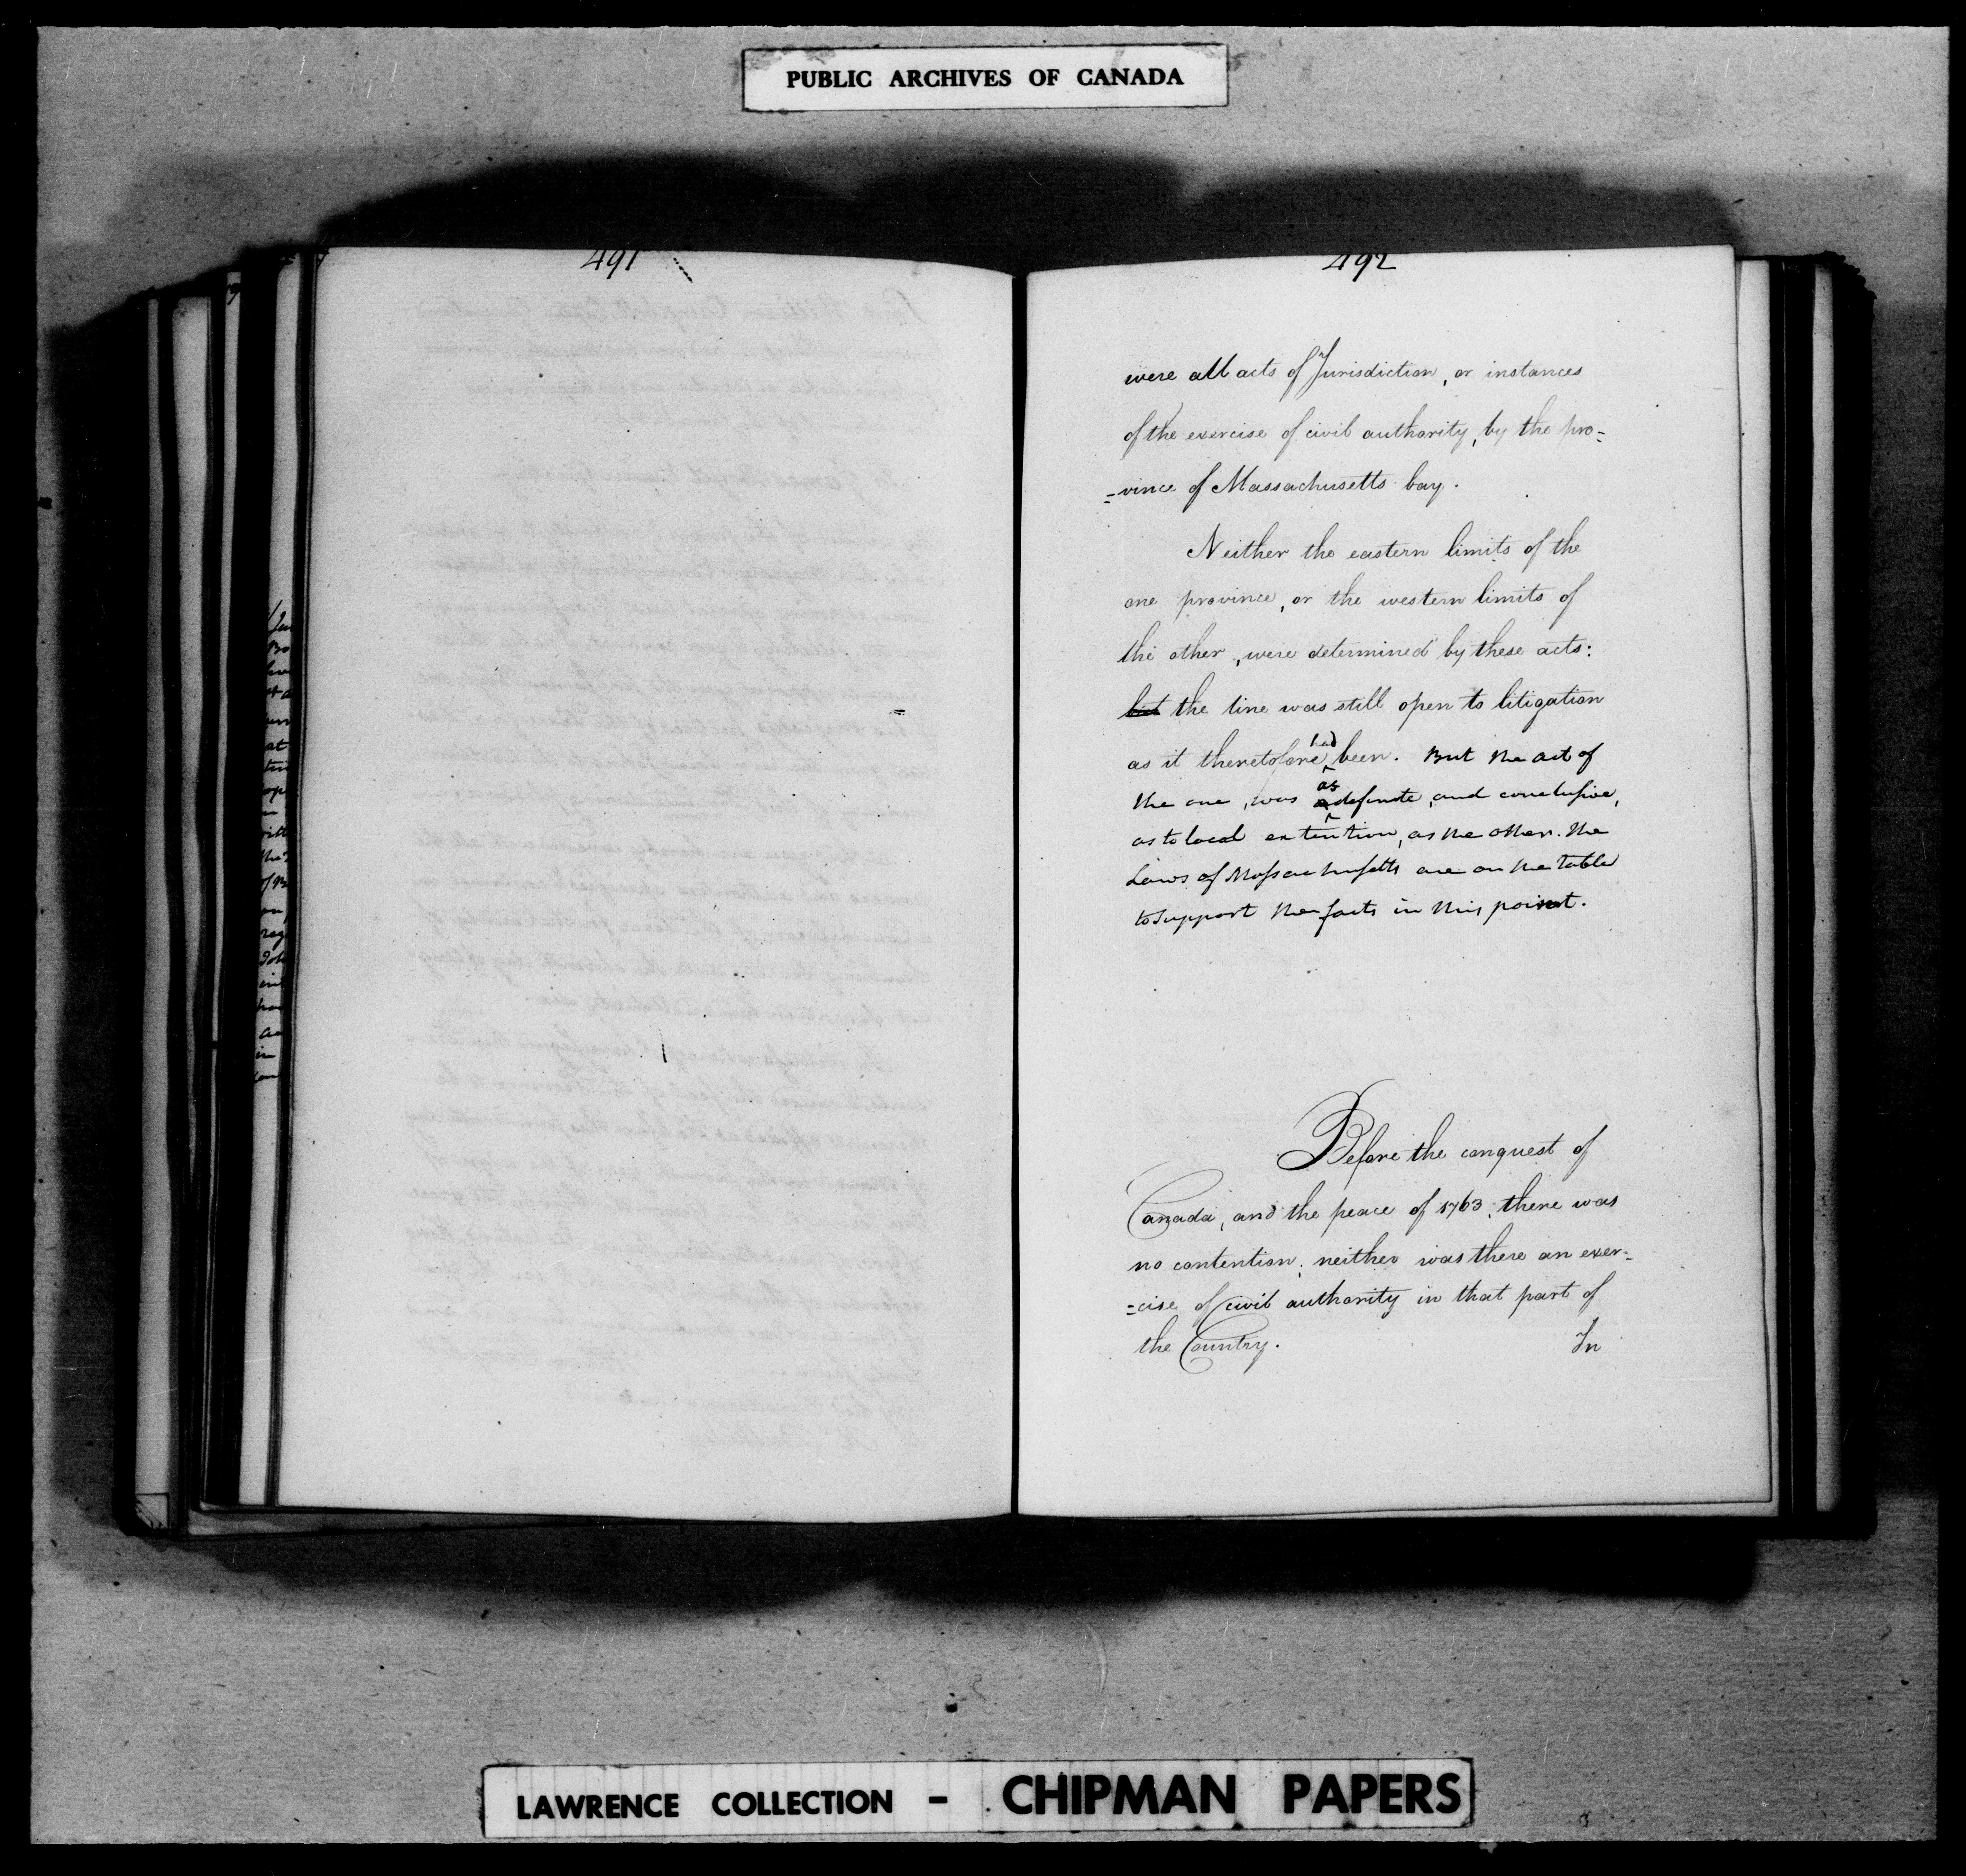 PUBLIC ARCHIVES OF CANADA
491
492
were all acts of Jurisdiction, or instances
of the exercise of civil authority, by the pro=
=vince of Massachusetts bay.
Neither the eastern limits of the
one province, or the western limits of
the other, were determined by these acts:
but the line was still open to litigation
as it theretofore had been. But the act of
the one, was as definite, and conclusive,
as to local extention, as the other. The
Laws of Massachusetts are on the table
to support the facts in this point.
Before the conquest of
Canada, and the peace of 1763, there was
no contention; neither was there an exer=
=cise of civil authority in that part of
the Country. In
LAWRENCE COLLECTION - CHIPMAN PAPERS